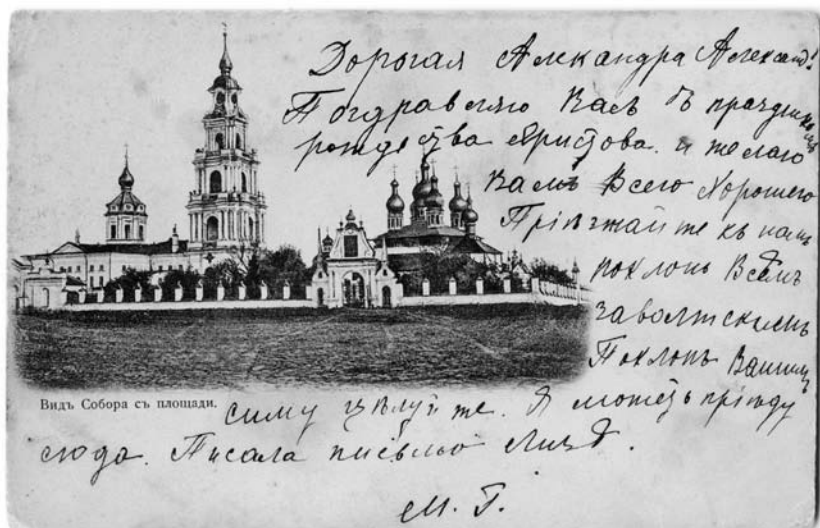 Дорогая Александра Александ!
Поздравляю Васъ съ праздникомъ
рождества Христова. и желаю
Вамъ Всего Хорошего
Пріѣзжайте къ намъ
поклонъ Всѣмъ
заволжскимъ
Поклонъ Вашимъ
Видъ Собора съ площади.
Симу цѣлуйте. Я можетъ пріѣду
сюда. Писала письмо Лизѣ.
М. Г.